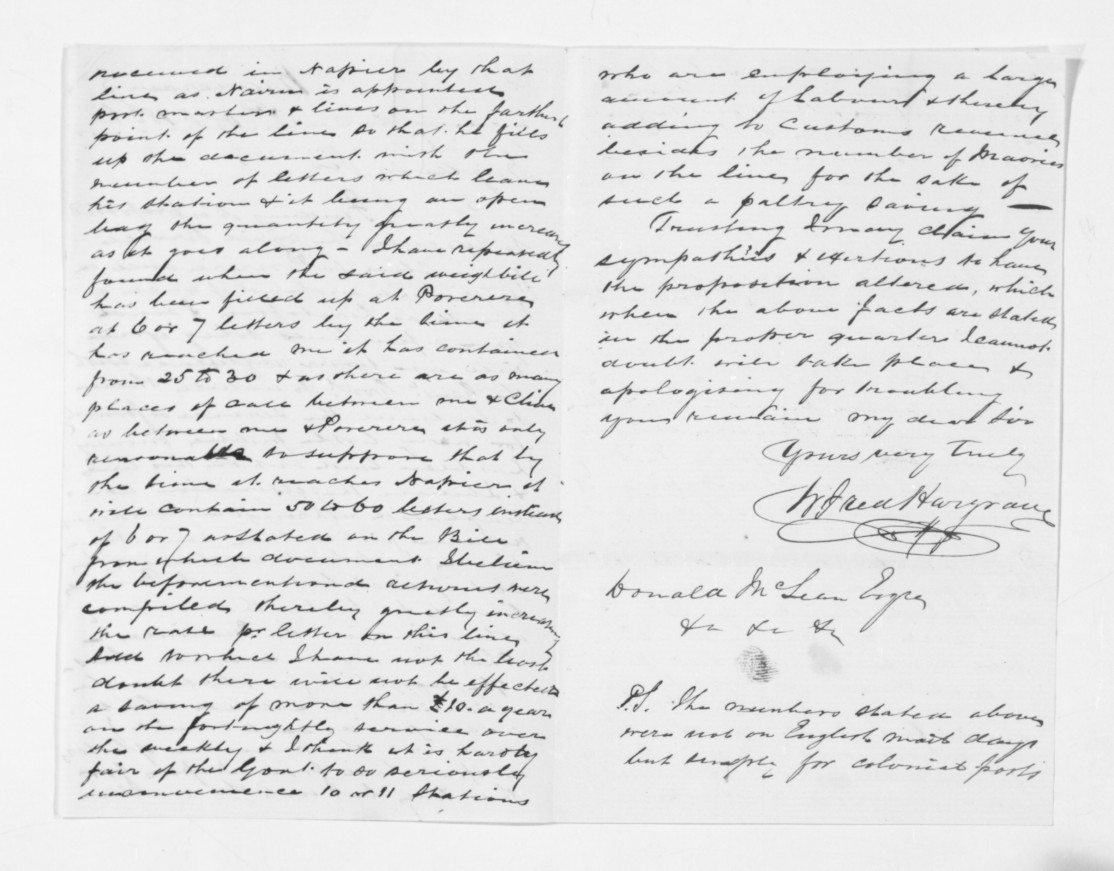 received in Napier by that
line as Nairn is appointed
post master & lives on the farthest
point of the line so that he fills
up the document with the
number of letters which leave
his station & it being an open
bag the quantity greatly increases
as it goes along - I have repeatedly
found when the said weighbill
has been filled up at Porerere
at 6 or 7 letters by the time it
has reached me it has contained
from 25 to 30 & as there are as many
places of call between me & Clive
as between me & Porerere it is only
reasonable to suppose that by
the time it reaches Napier it
will contain 50 to 60 letters instead
of 6 or 7 as stated on the Bill
from which document I believe
the beforementioned returns were
compiled thereby greatly increasing
the rate pr letter on this line
And to which I have not the least
doubt there will not be effected
a saving of more than £10 a year
on the fortnightly service over
the weekly & I think it is hardly
fair of the Govt. to so seriously
inconvenience 10 or 11 Stations
who are employing a large
amount of labour & thereby
adding to Customs revenue
besides the number of Maories
on the line for the sake of
such a paltry saving —
Trusting I may claim your
sympathies & exertions to have
the proposition altered, which
when the above facts are stated
in the proper quarters I cannot
doubt will take place &
apologising for troubling
you remain my dear Sir
Yours very truly
W Fred Hargrave
Donald McLean Esqre
&c &c &c
P.S. The numbers stated above
were not on English mail days
but simply for colonial posts